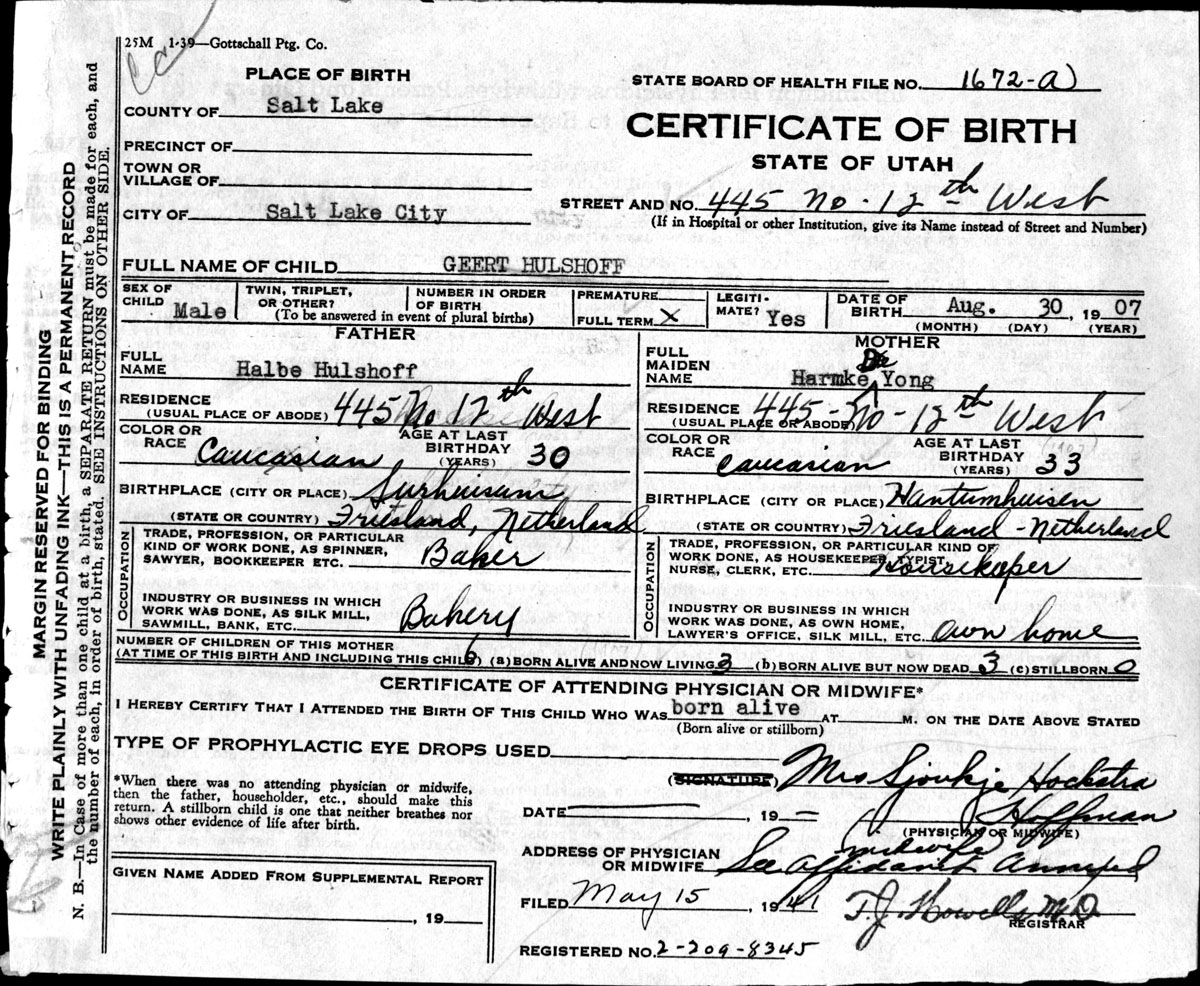 25M 1-39—Gottschall Ptg. Co.
PLACE OF BIRTH
STATE BOARD OF HEALTH FILE NO. 1672-A
COUNTY OF Salt Lake
CERTIFICATE OF BIRTH
PRECINCT OF
STATE OF UTAH
TOWN OR
VILLAGE OF
CITY OF Salt Lake City
STREET AND NO. 445 No. 12th West
(If in Hospital or other Institution, give its Name instead of Street and Number)
FULL NAME OF CHILD GEERT HULSHOFF
SEX OF CHILD Male
TWIN, TRIPLET, OR OTHER?
NUMBER IN ORDER OF BIRTH
(To be answered in event of plural births)
PREMATURE
FULL TERM X
LEGITIMATE? Yes
DATE OF BIRTH Aug. 30, 1907
(MONTH) (DAY) (YEAR)
FATHER
FULL NAME Halbe Hulshoff
RESIDENCE 445 No 12th West
(USUAL PLACE OF ABODE)
COLOR OR RACE Caucasian
AGE AT LAST BIRTHDAY (YEARS) 30
BIRTHPLACE (CITY OR PLACE) Surhuisam
(STATE OR COUNTRY) Friesland, Netherland
OCCUPATION
TRADE, PROFESSION, OR PARTICULAR
KIND OF WORK DONE, AS SPINNER,
SAWYER, BOOKKEEPER ETC. Baker
INDUSTRY OR BUSINESS IN WHICH
WORK WAS DONE, AS SILK MILL,
SAWMILL, BANK, ETC. Bakery
MOTHER
FULL MAIDEN NAME Harmke De Yong
RESIDENCE 445-No-12th West
(USUAL PLACE OR ABODE)
COLOR OR RACE Caucasian
AGE AT LAST BIRTHDAY (YEARS) 33
BIRTHPLACE (CITY OR PLACE) Hantumhuisen
(STATE OR COUNTRY) Friesland-Netherland
OCCUPATION
TRADE, PROFESSION, OR PARTICULAR KIND OF
WORK DONE, AS HOUSEKEEPER, TYPIST,
NURSE, CLERK, ETC. Housekeeper
INDUSTRY OR BUSINESS IN WHICH
WORK WAS DONE, AS OWN HOME,
LAWYER'S OFFICE, SILK MILL, ETC. Own home
NUMBER OF CHILDREN OF THIS MOTHER
(AT TIME OF THIS BIRTH AND INCLUDING THIS CHILD) 6 (a) BORN ALIVE AND NOW LIVING 3 (b) BORN ALIVE BUT NOW DEAD 3 (c) STILLBORN 0
CERTIFICATE OF ATTENDING PHYSICIAN OR MIDWIFE*
I HEREBY CERTIFY THAT I ATTENDED THE BIRTH OF THIS CHILD WHO WAS born alive AT M. ON THE DATE ABOVE STATED
(Born alive or stillborn)
TYPE OF PROPHYLACTIC EYE DROPS USED
*When there was no attending physician or midwife,
then the father, householder, etc., should make this
return. A stillborn child is one that neither breathes nor
shows other evidence of life after birth.
(SIGNATURE) Mrs Sjoukje Hockstra
Hoffman
DATE , 19
(PHYSICIAN OR MIDWIFE)
midwife
ADDRESS OF PHYSICIAN
OR MIDWIFE See Affidavit Annexed
GIVEN NAME ADDED FROM SUPPLEMENTAL REPORT
, 19
FILED May 15, 1941
T.J. Howells M.D.
REGISTRAR
REGISTERED NO. 2-209-8345
MARGIN RESERVED FOR BINDING
WRITE PLAINLY WITH UNFADING INK—THIS IS A PERMANENT RECORD
N. B.—In Case of more than one child at a birth, a SEPARATE RETURN must be made for each, and
the number of each, in order of birth, stated. SEE INSTRUCTIONS ON OTHER SIDE.